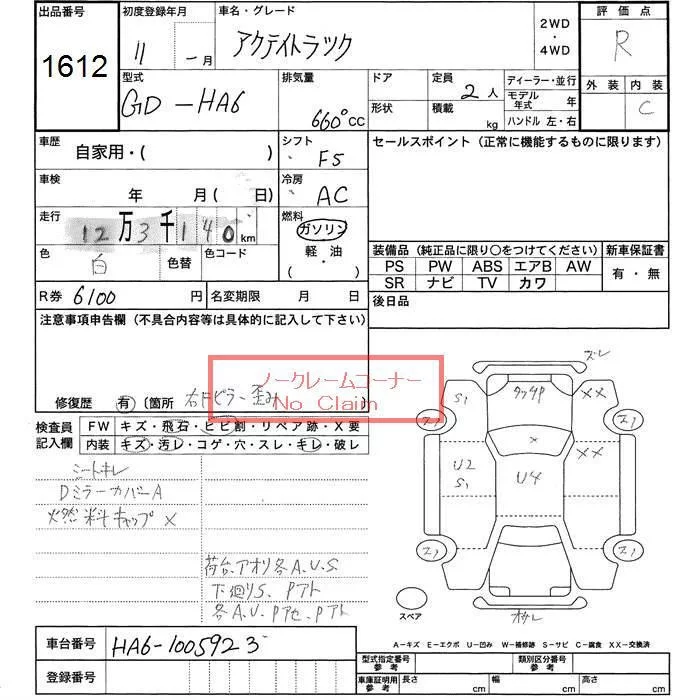 出品番号
1612
初度登録年月
11 - 月
車名・グレード
アクティトラック
2WD
・
4WD
評価点
R
型式
GD-HA6
排気量
660 CC
ドア
形状
定員
2 人
積載
kg
ディーラー・並行
モデル年式 年
ハンドル 左・右
外装 内装
C
車歴
自家用・( )
シフト
F5
セールスポイント(正常に機能するものに限ります)
車検
年 月( 日)
冷房
AC
走行
12万3千140km
燃料
ガソリン
軽・油
・( )
色
白
色替
色コード
装備品(純正品に限り〇をつけてください)
新車保証書
PS PW ABS エアB AW
SR ナビ TV カワ
有・無
R券 6100 円
名変期限 月 日
後日品
注意事項申告欄(不具合内容等は具体的に記入して下さい)
ノークレームコーナー
No Claim
修復歴 有 〔箇所 右Fピラー歪み
検査員記入欄
FW キズ・飛石・ヒビ割・リペア跡・X要
内装 キズ・汚レ・コゲ・穴・スレ・キレ・破レ
シートキレ
DミラーカバーA
燃料キャップ X
荷台、アオリ各A.U.S
下廻りS、Pアト
各A.U、Pアセ、Pアト
ズレ
S1
XX
XX
X
U2
S1
U4
スペア
A-キズ E-エクボ U-凹み W-補修跡 S-サビ C-腐食 XX-交換済
車台番号
HA6-1005923
登録番号
型式指定番号
参考
類別区分番号
参考
車庫証明用
参考
長さ cm
幅 cm
高さ cm